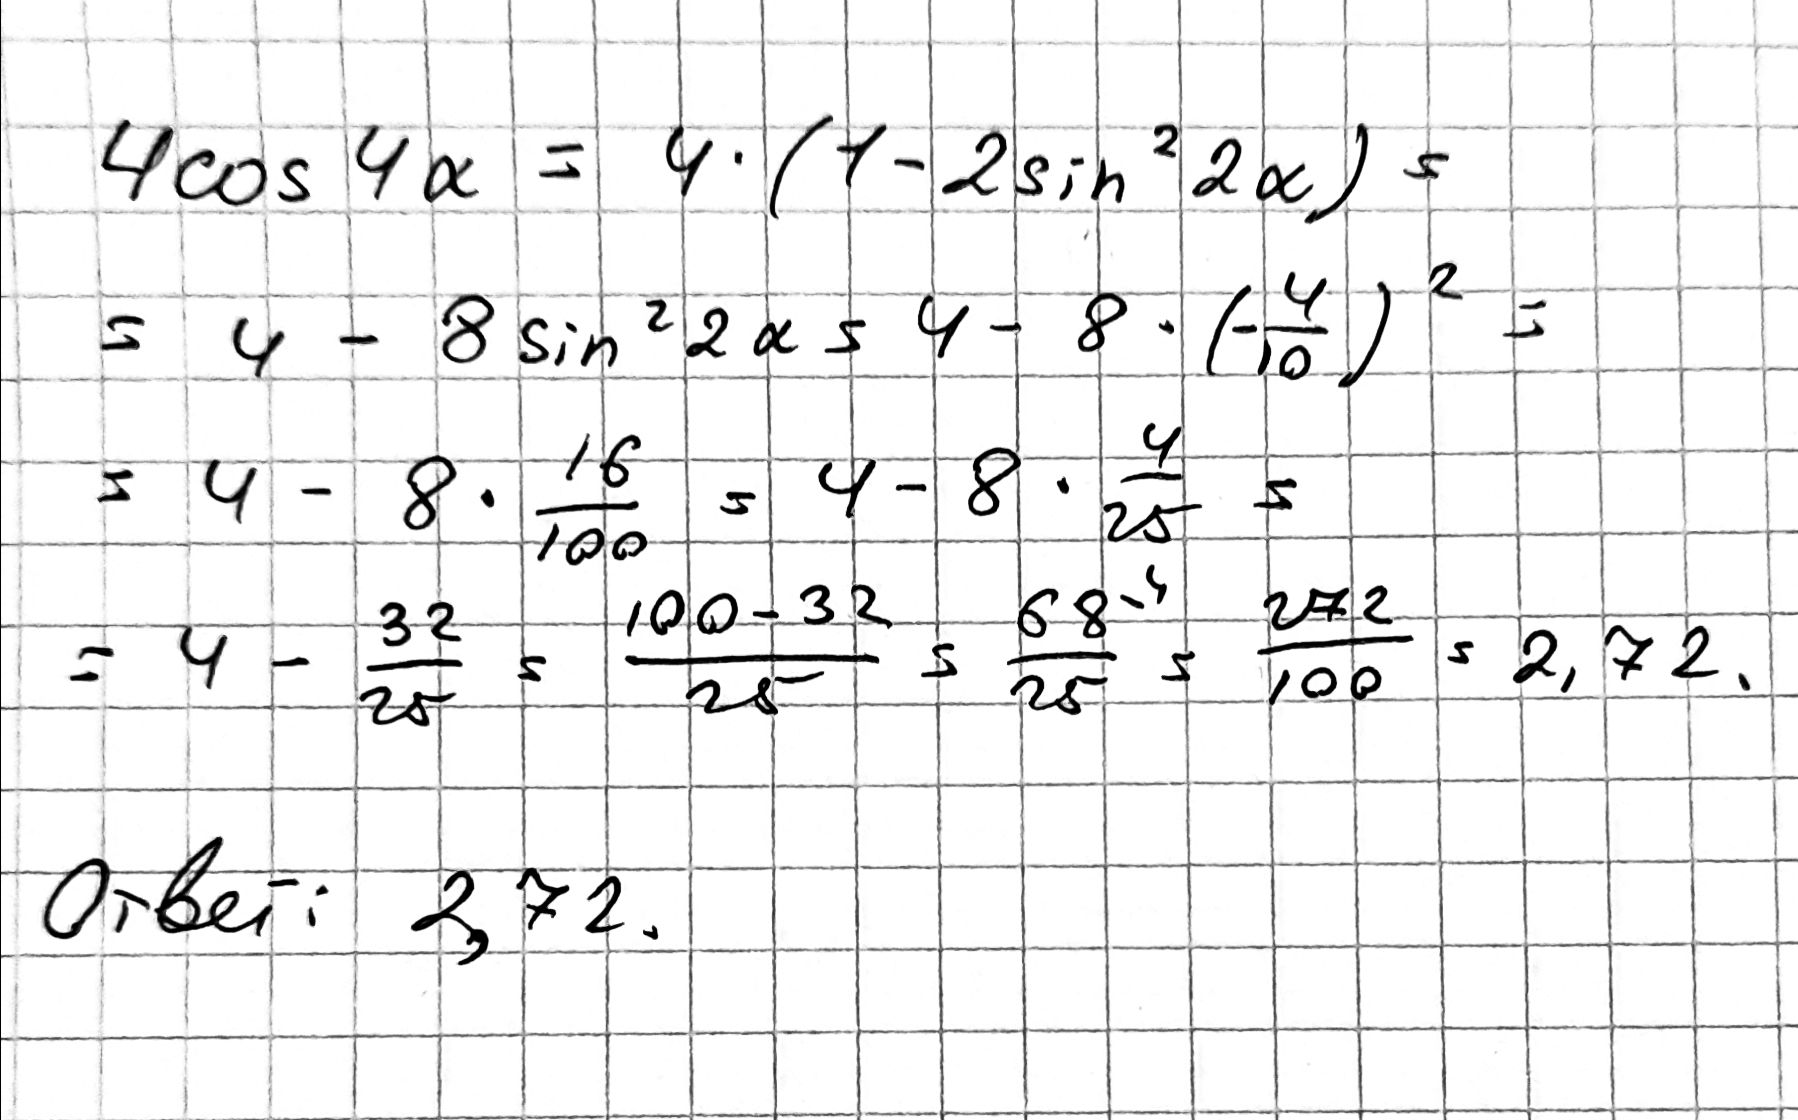 4cos 4α = 4·(1 - 2sin²2α) =
= 4 - 8sin²2α = 4 - 8·(-4/10)² =
= 4 - 8·16/100 = 4 - 8·4/25 =
= 4 - 32/25 = (100-32)/25 = 68·4/25 = 272/100 = 2,72.
Ответ: 2,72.